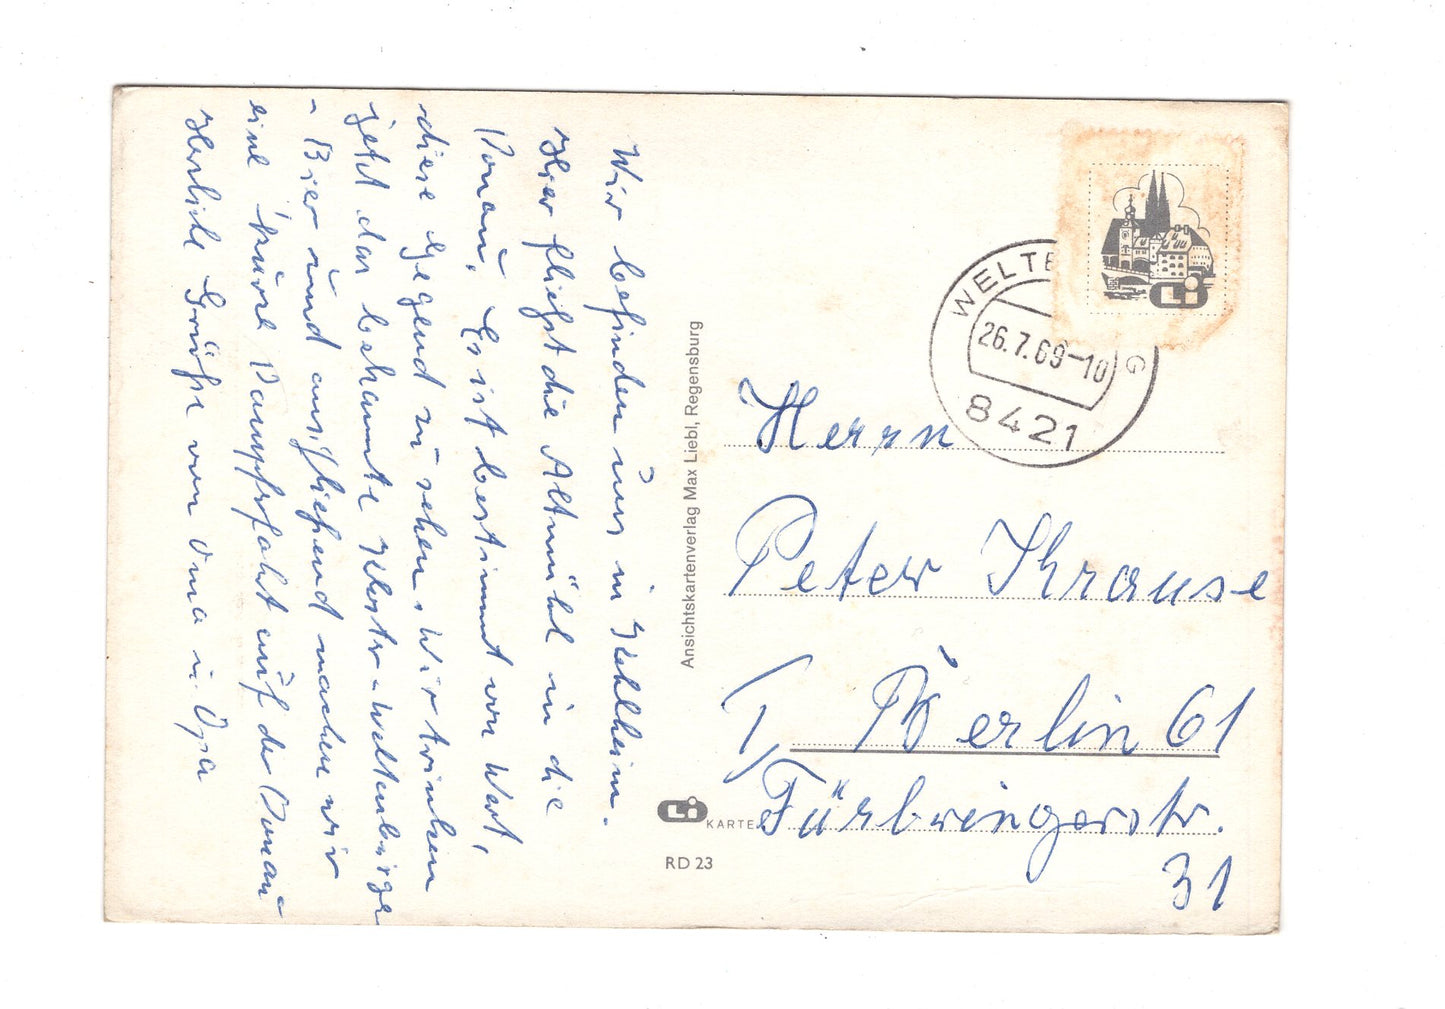 Wir befinden uns in Kehlheim.
Hier fließt die Altmühl in die
Donau. Es ist bestimmt von Wert,
diese Gegend zu sehen. Wir trinken
jetzt das bekannte Klostr-Weltenburger
- Bier und ausfließend machen wir
eine kurze Dampfrfahrt auf de Donau-
Herzliche Grüße von Oma u. Opa
Ansichtskartenverlag Max Liebl, Regensburg
Li KARTE
RD 23
WELTE G
26.7.69-10
8421
Li
Herrn
Peter Krause
1/ Berlin 61
Fürbringerstr.
31